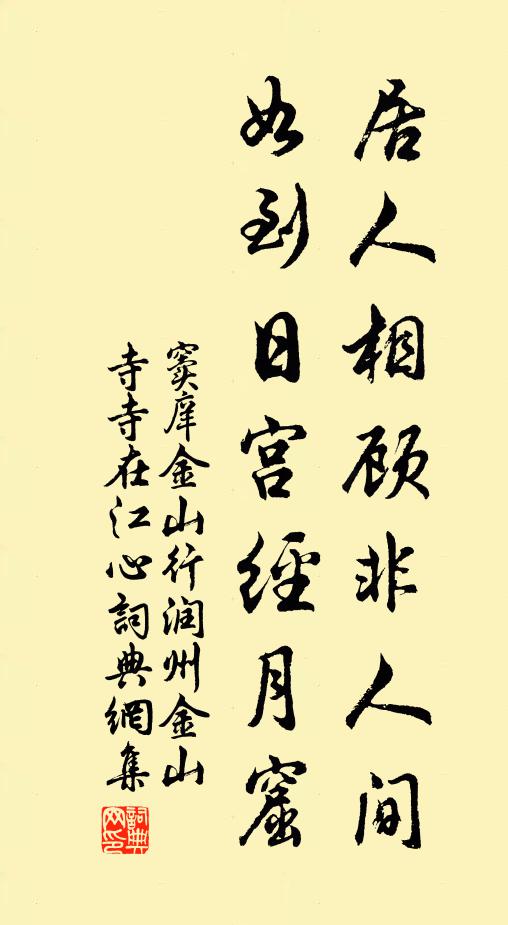 居人相顾非人间
如到日宫经月窟
窦庠金山行润州金山
寺寺在江心詞典網集
詞典
网印